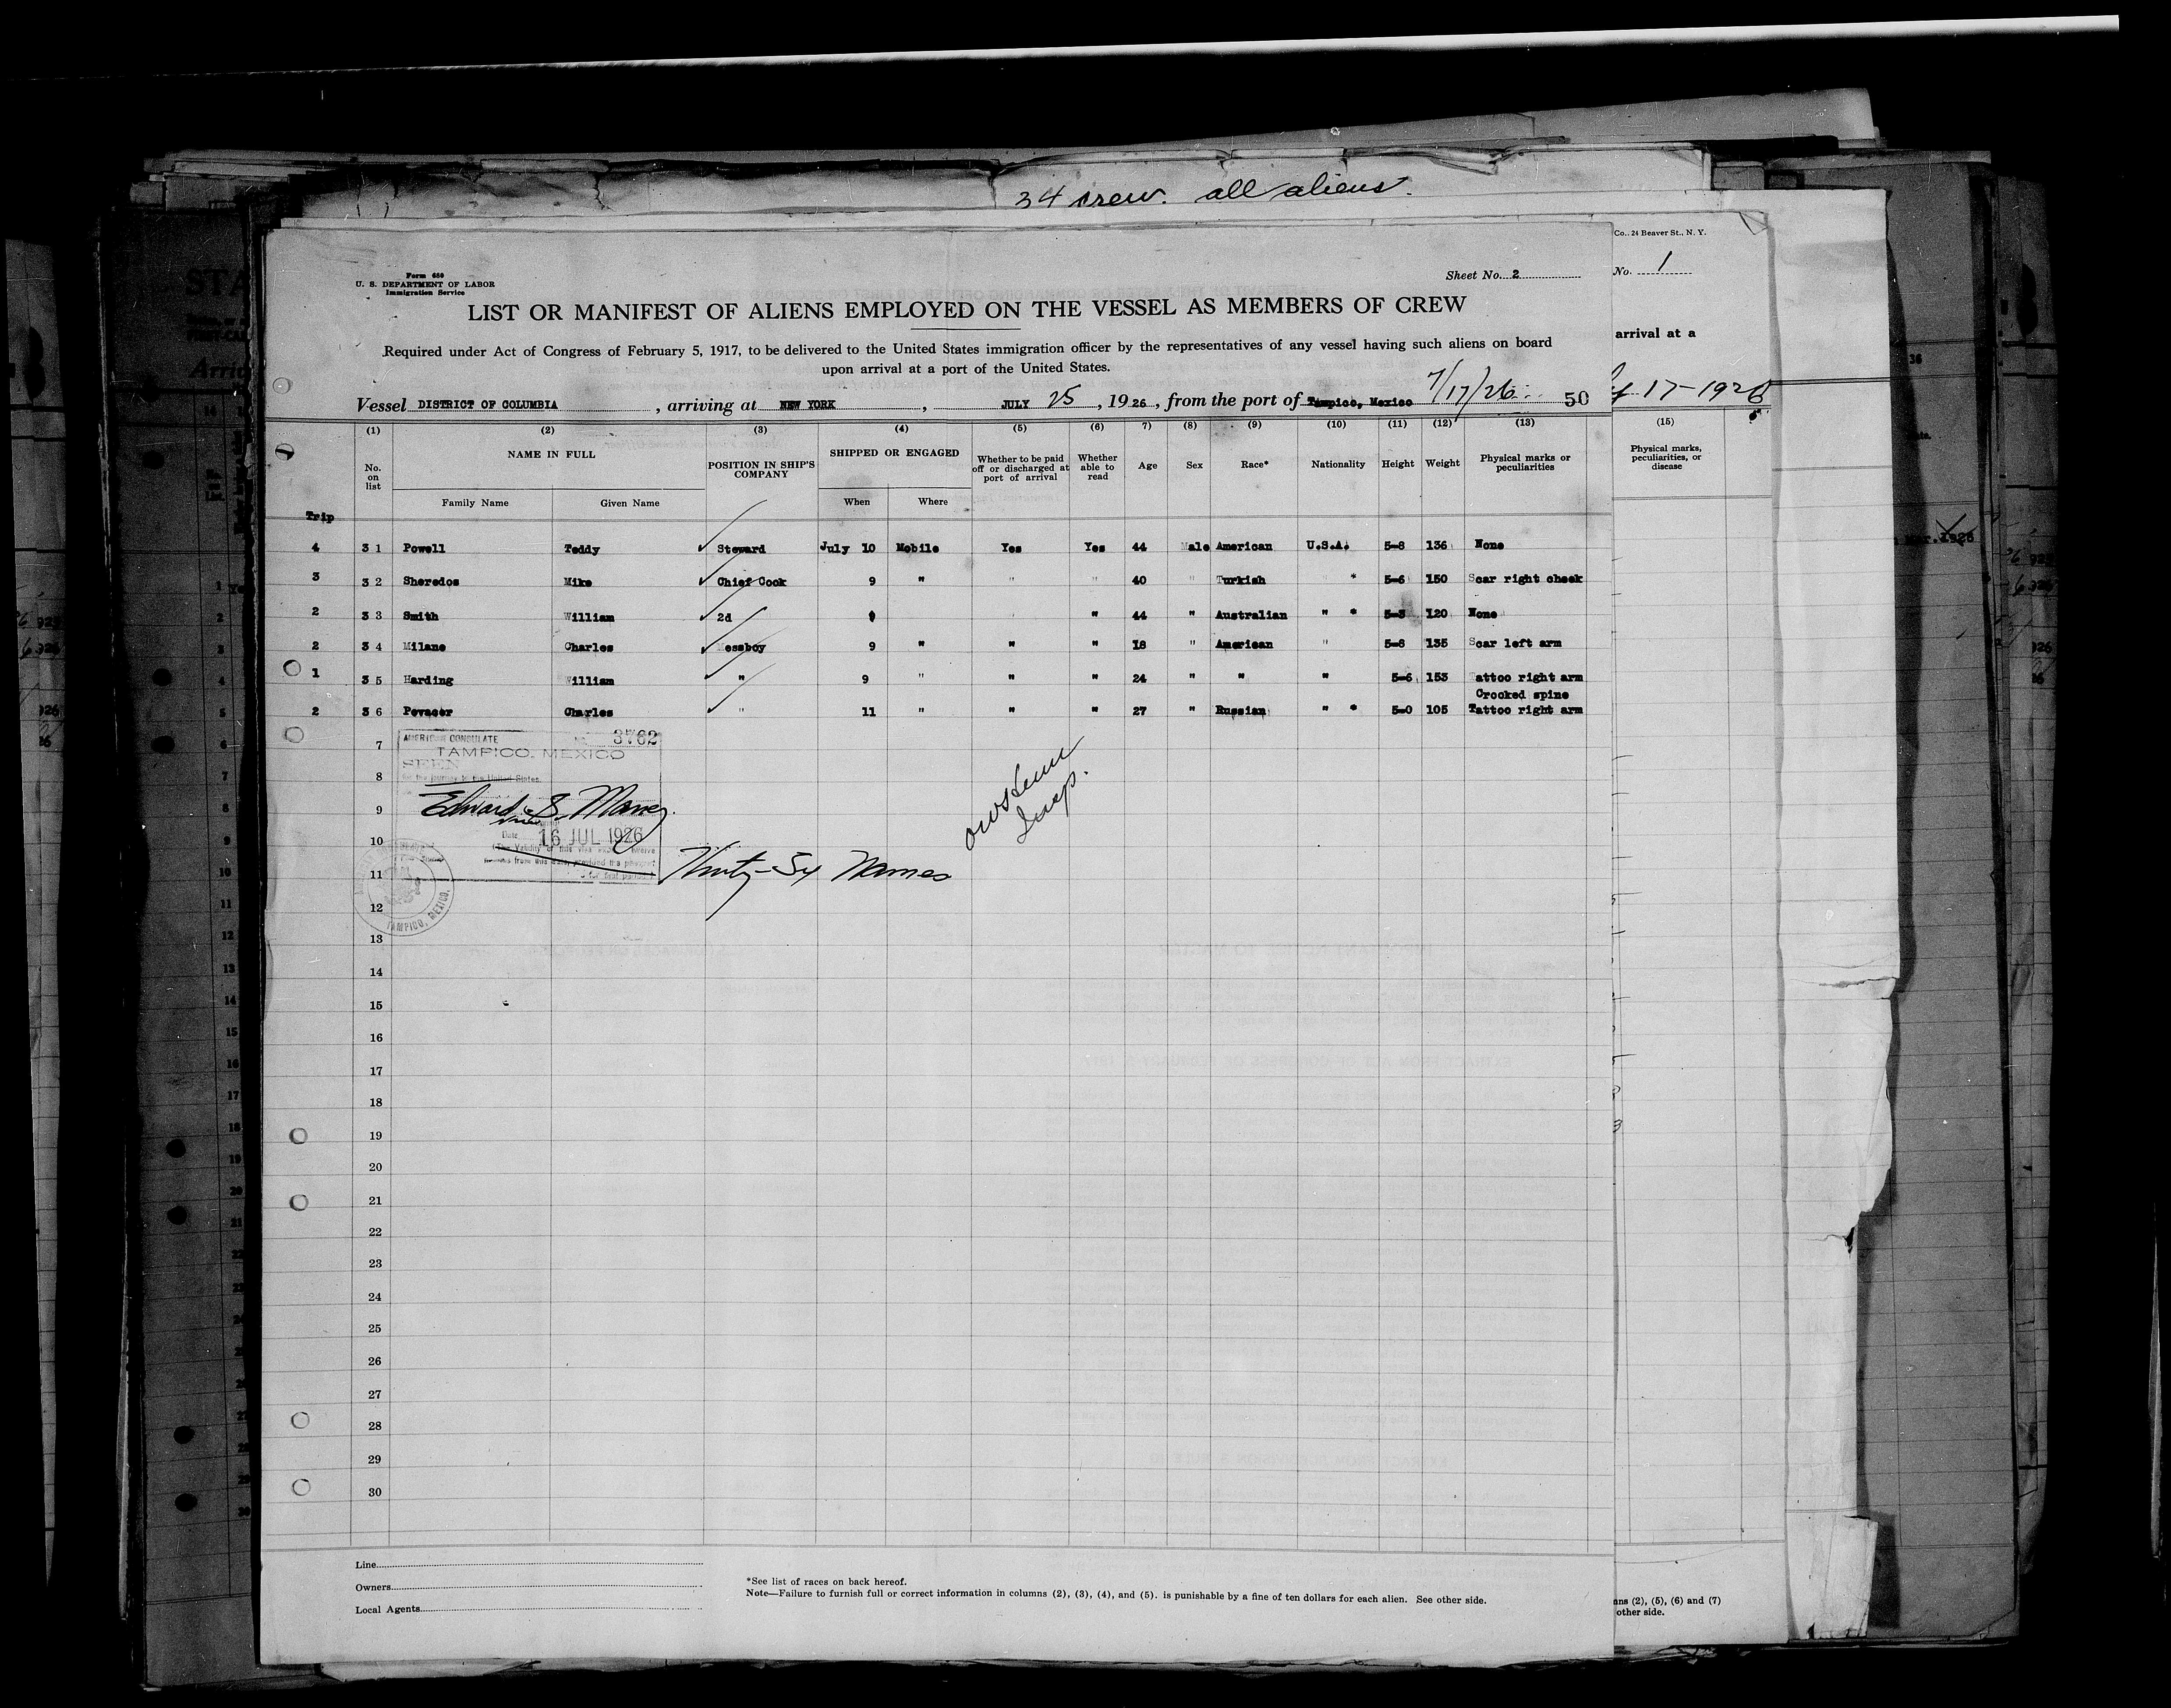 34 crew. all aliens.
Co., 24 Beaver St., N. Y.
No. 1
arrival at a
17-1926
(15)
Physical marks,
peculiarities, or
disease
Form 680
U. S. DEPARTMENT OF LABOR
Immigration Service
Sheet No. 2
LIST OR MANIFEST OF ALIENS EMPLOYED ON THE VESSEL AS MEMBERS OF CREW
Required under Act of Congress of February 5, 1917, to be delivered to the United States immigration officer by the representatives of any vessel having such aliens on board
upon arrival at a port of the United States.
Vessel DISTRICT OF COLUMBIA, arriving at NEW YORK, JULY 25, 1926, from the port of Tampico, Mexico 7/17/26 50
(1) (2) (3) (4) (5) (6) 7) (8) (9) (10) (11) (12) (13)
No. on list NAME IN FULL POSITION IN SHIP'S COMPANY SHIPPED OR ENGAGED Whether to be paid off or discharged at port of arrival Whether able to read Age Sex Race* Nationality Height Weight Physical marks or peculiarities
Family Name Given Name When Where
Trip
4 31 Powell Teddy Steward July 10 Mobile Yes Yes 44 Male American U.S.A. 5-8 136 None
3 32 Sheredos Mike Chief Cook 9 " " " 40 " Turkish * 5-6 150 Scar right cheek
2 33 Smith William 2d " 44 " Australian " * 120 None
2 34 Milane Charles Messboy 9 " " " 18 " American " 5-8 135 Scar left arm
1 35 Harding William " 9 " " " 24 " " " 5-6 153 Tattoo right arm
Crooked spine
2 36 Pevacer Charles " 11 " " " 27 " Russian " * 5-0 105 Tattoo right arm
AMERICAN CONSULATE No. 3762
TAMPICO, MEXICO
SEEN
for the journey to the United States.
Edward S. Maney
Date 16 JUL 1926
TAMPICO, MEXICO.
Thirty-Six Names
Insp.
7
8
9
10
11
12
13
14
15
16
17
18
19
20
21
22
23
24
25
26
27
28
29
30
Line
Owners
Local Agents
*See list of races on back hereof.
Note—Failure to furnish full or correct information in columns (2), (3), (4), and (5). is punishable by a fine of ten dollars for each alien. See other side.
(2), (5), (6) and (7)
other side.